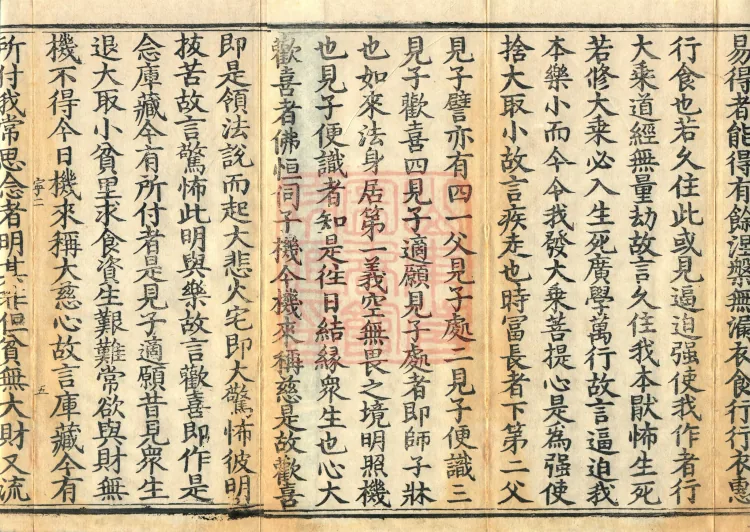 易得者能得有餘涅槃無漏衣食行行衣惠
行食也若久住此或見逼迫强使我作者行
大乘道經無量劫故言久住我本猒怖生死
若修大乘必入生死廣學萬行故言逼迫我
本樂小而今令我發大乘菩提心是為强使
捨大取小故言疾走也時冨長者下第二父
見子譬亦有四一父見子處二見子便識三
見子歡喜四見子適願見子處者即師子牀
也如來法身居第一義空無畏之境明照機
也見子便識者知是往日結縁衆生也心大
歡喜者佛恒伺子機今機來稱慈是故歡喜
即是領法說而起大悲火宅即大驚怖彼明
拔苦故言驚怖此明與樂故言歡喜即作是
念庫藏今有所付者是見子適願昔見衆生
退大取小貧里求食資生艱難常欲與財無
機不得今日機來稱大慈心故言庫藏今有
寧二
五
所付我常思念者明其非但貧無大財又流